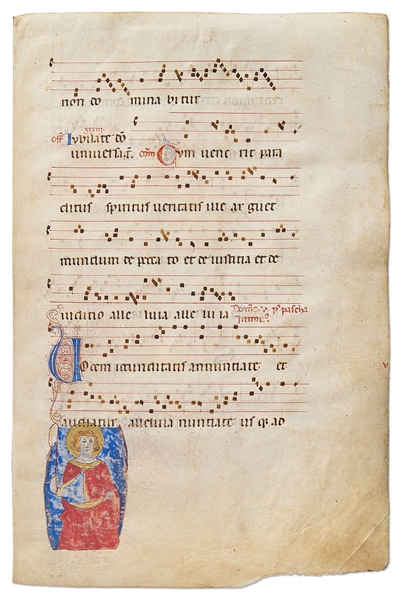 non do mina bitur
off Iubilate deo xxiii
universa t. com Cum vene rit para
clitus spiritus veritatis ille ar guet
mundum de pecca to et de iustitia et de
iuditio alle luia alle lu ia
Vocem iocunditatis annunciate et
audiatur alleluia nunciate us que ad